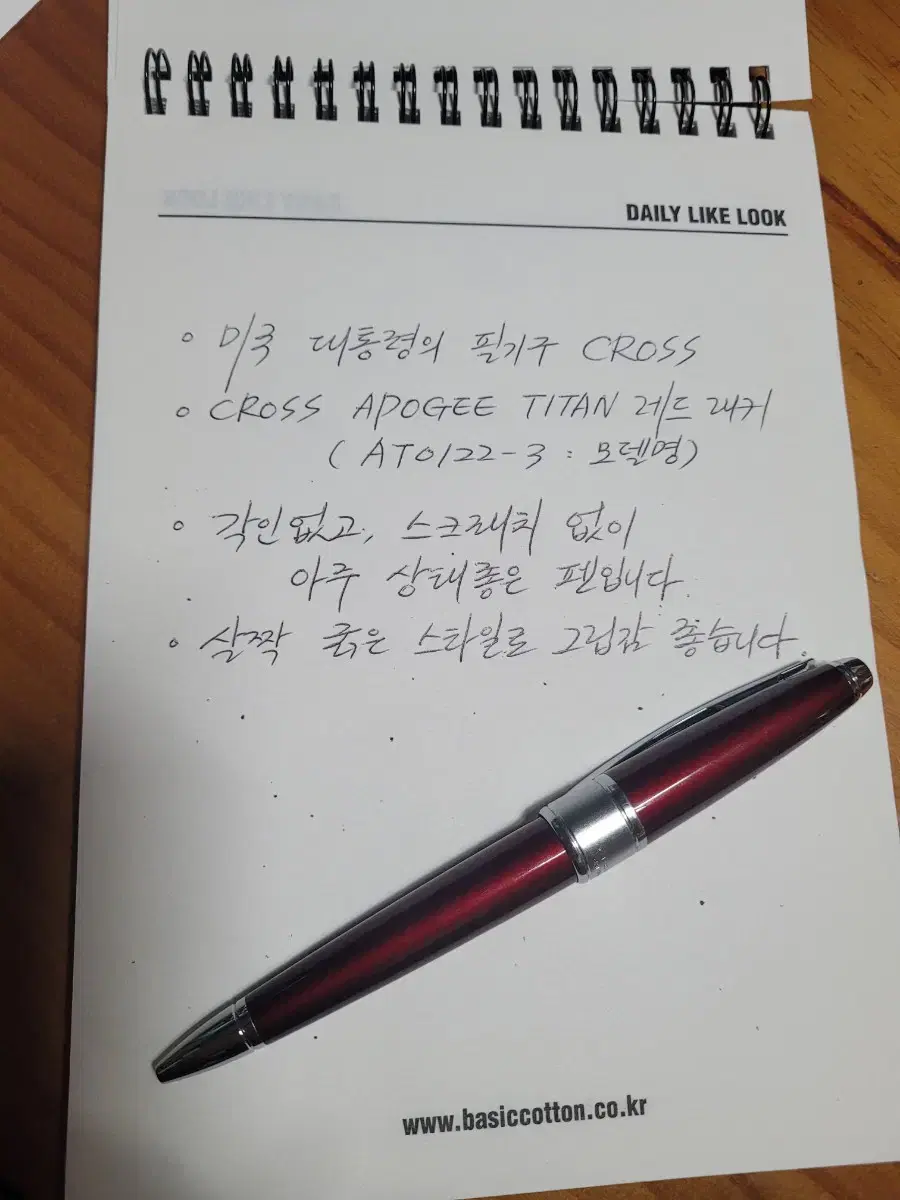 DAILY LIKE LOOK
◦ 미국 대통령의 필기구 CROSS
◦ CROSS APOGEE TITAN 레드 래커
(AT0122-3 : 모델명)
◦ 각인없고, 스크래치 없이
아주 상태좋은 펜입니다.
◦ 살짝 굵은 스타일로 그립감 좋습니다.
www.basiccotton.co.kr